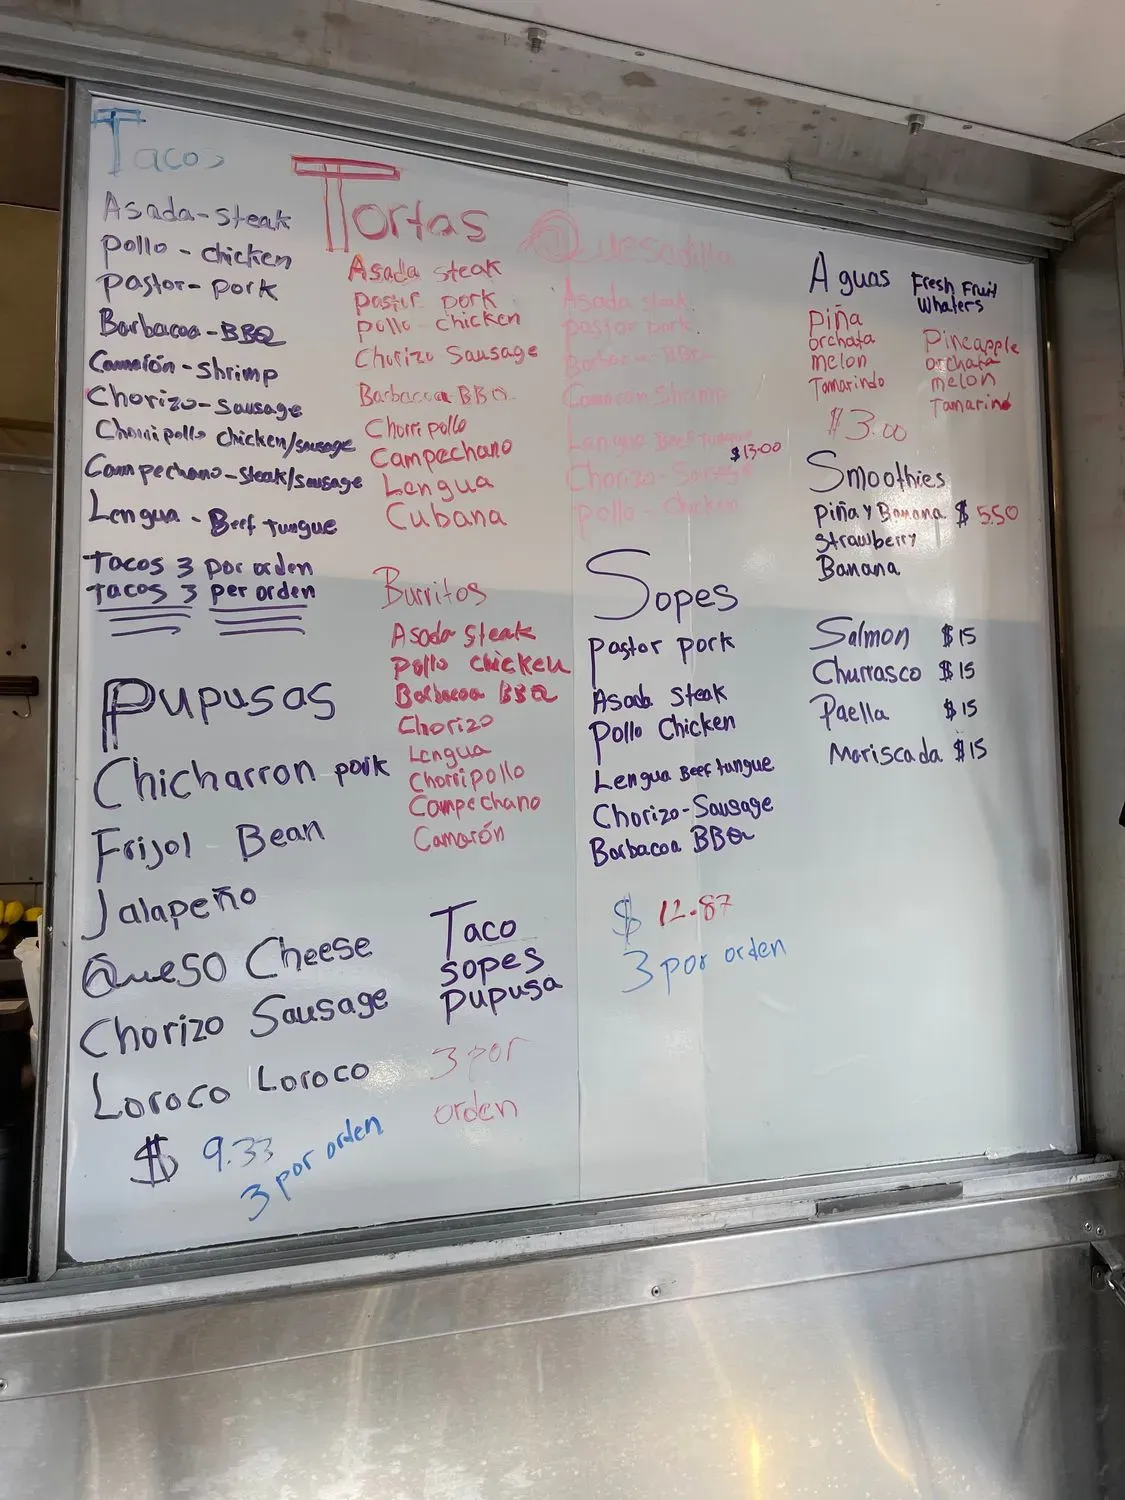 Tacos
Asada-steak
pollo - chicken
pastor- pork
Barbacoa-BBQ
Camarón-shrimp
Chorizo-sausage
Chorri pollo chicken/sausage
Campechano-steak/sausage
Lengua - Beef Tungue
Tacos 3 por orden
tacos 3 per orden
Pupusas
Chicharron pork
Frijol Bean
Jalapeño
Queso Cheese
Chorizo Sausage
Loroco Loroco
$ 9.33
3 por orden
Tortas
Asada steak
pastor pork
pollo chicken
Chorizo Sausage
Barbacoa BBQ
Chorri pollo
Campechano
Lengua
Cubana
Burritos
Asada steak
Pollo chicken
Barbacoa BBQ
Chorizo
Lengua
Chorripollo
Campechano
Camarón
Taco
sopes
pupusa
3 por
orden
Quesadilla
Asada steak
pastor pork
Barbacoa-BBQ
Camaron Shrimp
Lengua Beef Tungue
$13.00
Chorizo-Sausage
pollo-Chicken
Sopes
pastor pork
Asada steak
Pollo Chicken
Lengua Beef tungue
Chorizo-Sausage
Barbacoa BBQ
$ 12.87
3 por orden
Aguas
piña
orchata
melon
Tamarindo
Fresh Fruit
Whaters
Pineapple
orchata
melon
Tamarind
$3.00
Smoothies
piña y Banana $ 5.50
strawberry
Banana
Salmon $15
Churrasco $15
Paella $15
Mariscada $15